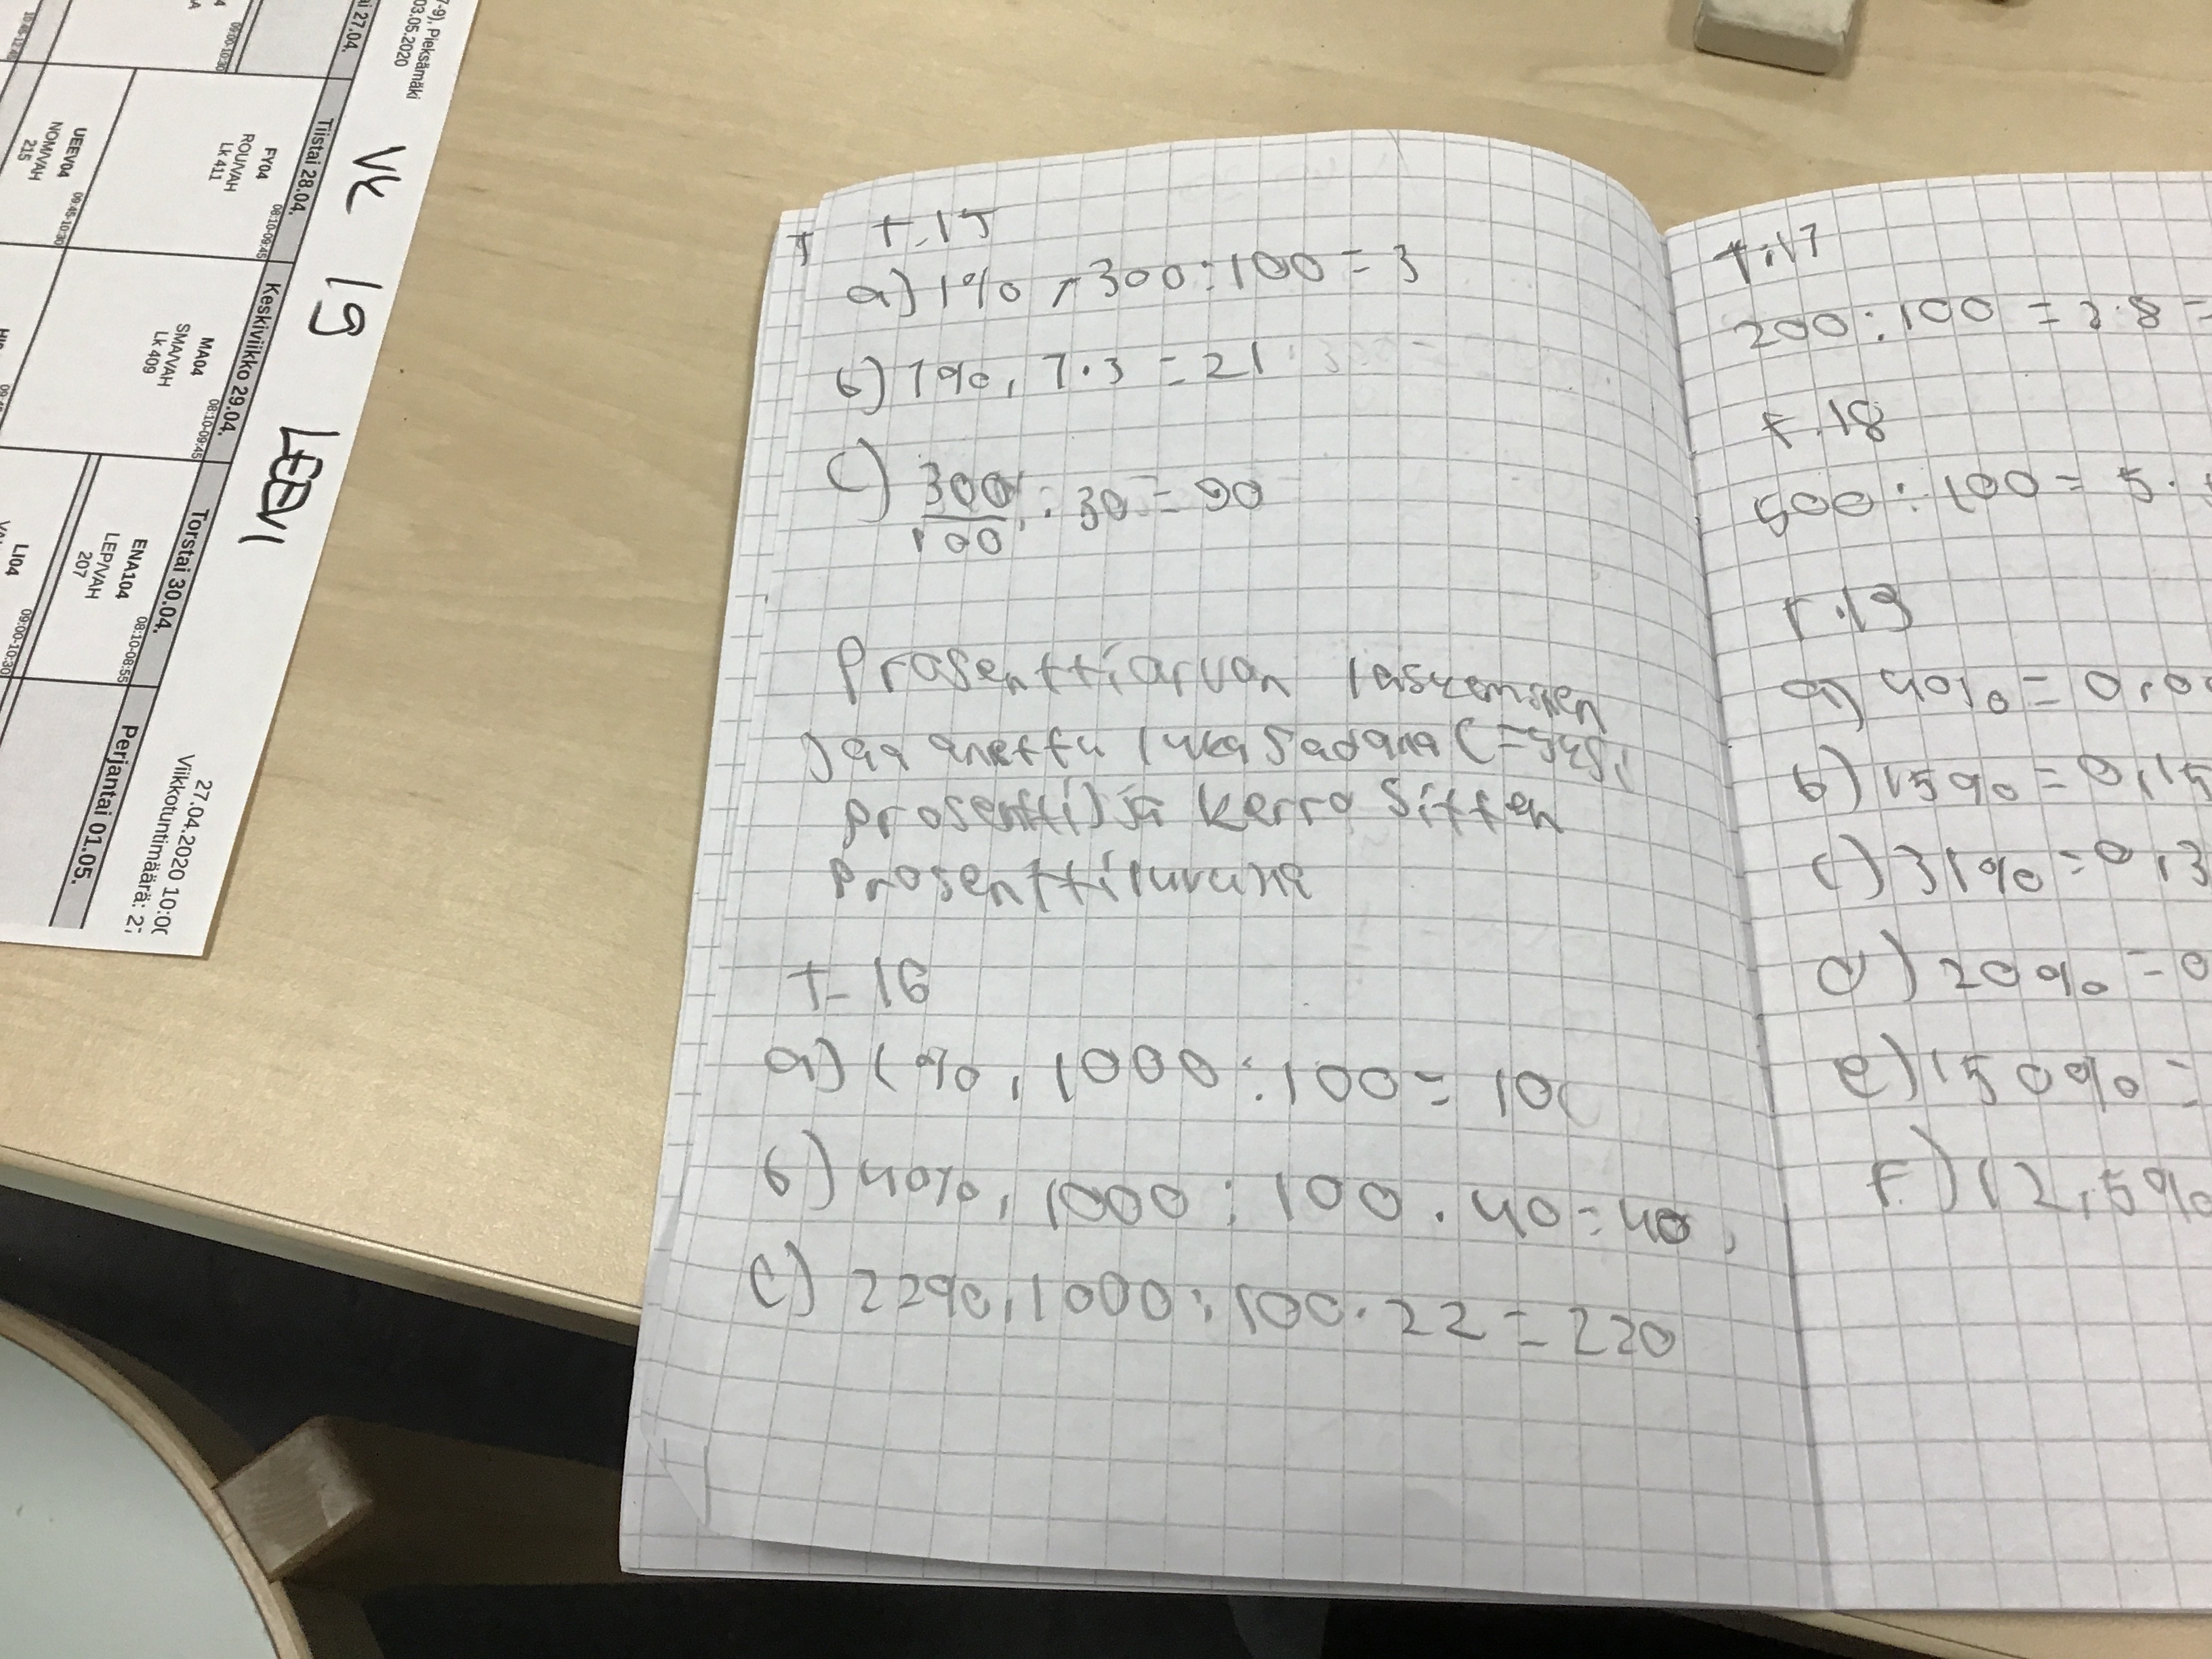 7-9), Pieksämäki
03.05.2020
VK 19 LEEVI
27.04.2020 10:0
Viikkotuntimäärä: 2
27.04.
Tiistai 28.04.
Keskiviikko 29.04.
Torstai 30.04.
Perjantai 01.05.
09:00-10:30
08:10-09:45
FY04
ROU/VAH
Lk 411
09:45-10:30
UEEV04
NOM/VAH
215
08:10-09:45
MA04
SMA/VAH
Lk 409
08:10-08:55
ENA104
LEP/VAH
207
09:00-10:30
LI04
t.15
a) 1% , 300 : 100 = 3
b) 7%, 7·3 = 21
c) 300/100 · 30 = 90
Prosenttiarvon laskeminen
Jaa anettu luku Sadana (=yksi
prosentti) ja kerro Sitten
Prosenttiluvuna
t. 16
a) 1%, 1000 : 100 = 10
b) 40%, 1000 : 100 · 40 = 40
c) 22%, 1000 : 100 · 22 = 220
t.17
200 : 100 = 2·8 =
t.18
500 : 100 = 5 ·
t.19
a) 40% = 0,0
b) 15% = 0,15
c) 31% = 0,3
d) 20% = 0
e) 150% =
f.) 12,5%